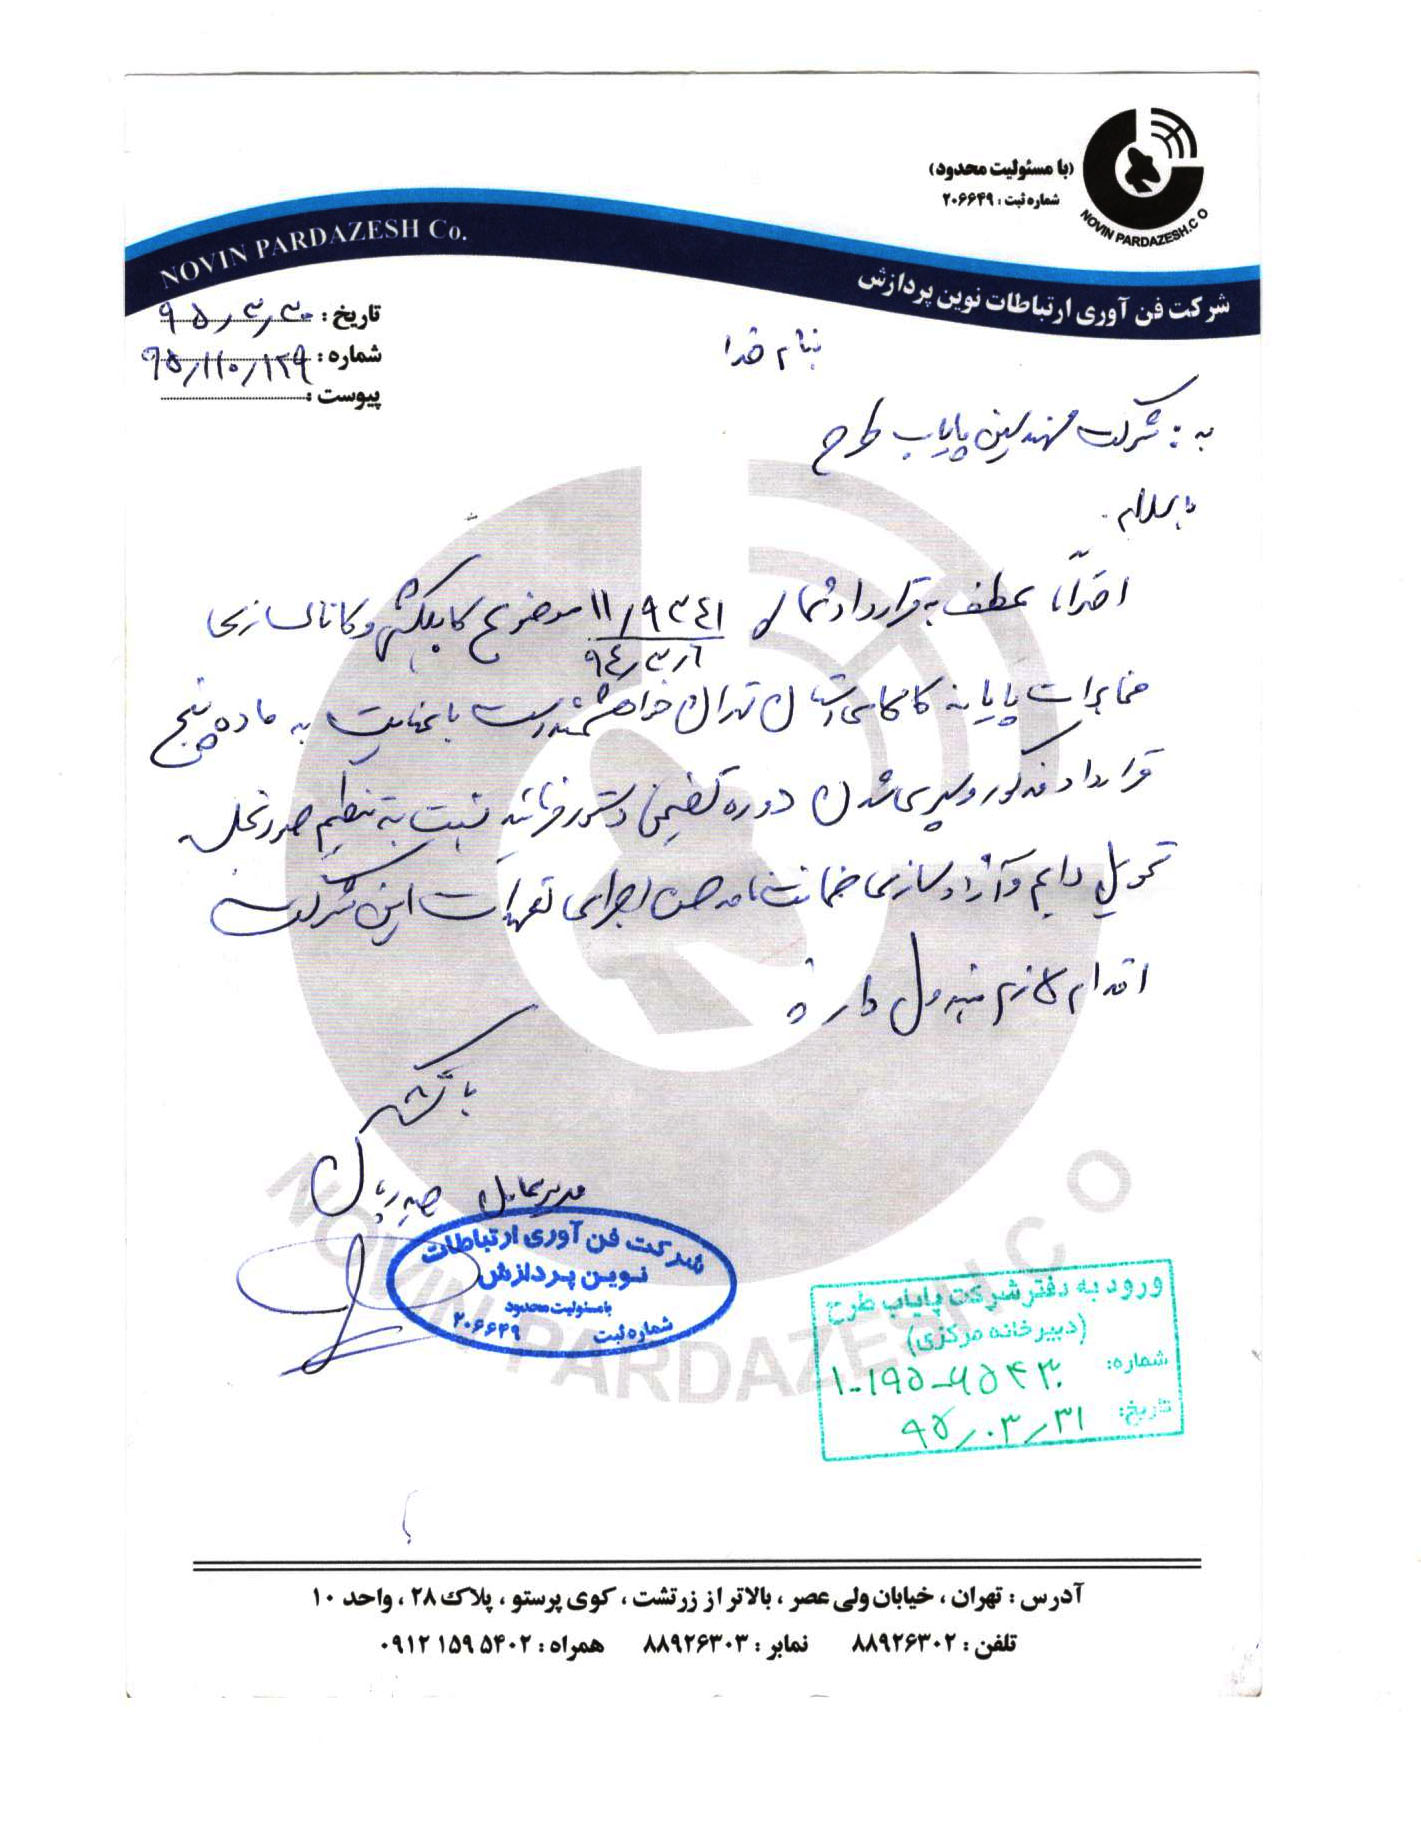 (با مسئولیت محدود)
شماره ثبت : ۲۰۶۶۴۹
NOVIN PARDAZESH.CO
NOVIN PARDAZESH Co.
شرکت فن آوری ارتباطات نوین پردازش
تاریخ : ۹۵/۳/۳۰
شماره : ۹۵/۱۱۰/۱۲۹
پیوست :
بنام خدا
به : شرکت مهندسین پایاب طرح
با سلام .
احتراماً، عطف به قرارداد شماره ۱۱/۹۳۴۱ موضوع کابلکشی و کانالسازی
۹۴/۳/۶
مخابرات پایانه کالاهای استان تهران خواهشمند است با عنایت به ماده پنج
قرارداد مذکور و سپری شدن دوره تضمین دستور فرمائید نسبت به تنظیم صورتجلسه
تحویل دایم و آزادسازی ضمانت نامه حسن اجرای تعهدات این شرکت
اقدام لازم مبذول دارند
با تشکر
مدیرعامل
شرکت فن آوری ارتباطات
نوین پردازش
بامسئولیت محدود
شماره ثبت ۲۰۶۶۴۹
ورود به دفتر شرکت پایاب طرح
(دبیرخانه مرکزی)
شماره: ۱-۱۹۵-۶۵۴۳۰
تاریخ: ۹۵/۰۳/۳۱
NOVIN PARDAZESH.CO
آدرس : تهران ، خیابان ولی عصر ، بالاتر از زرتشت ، کوی پرستو ، پلاک ۲۸ ، واحد ۱۰
تلفن : ۸۸۹۲۶۳۰۲ نمابر : ۸۸۹۲۶۳۰۳ همراه : ۰۹۱۲ ۱۵۹ ۵۴۰۲